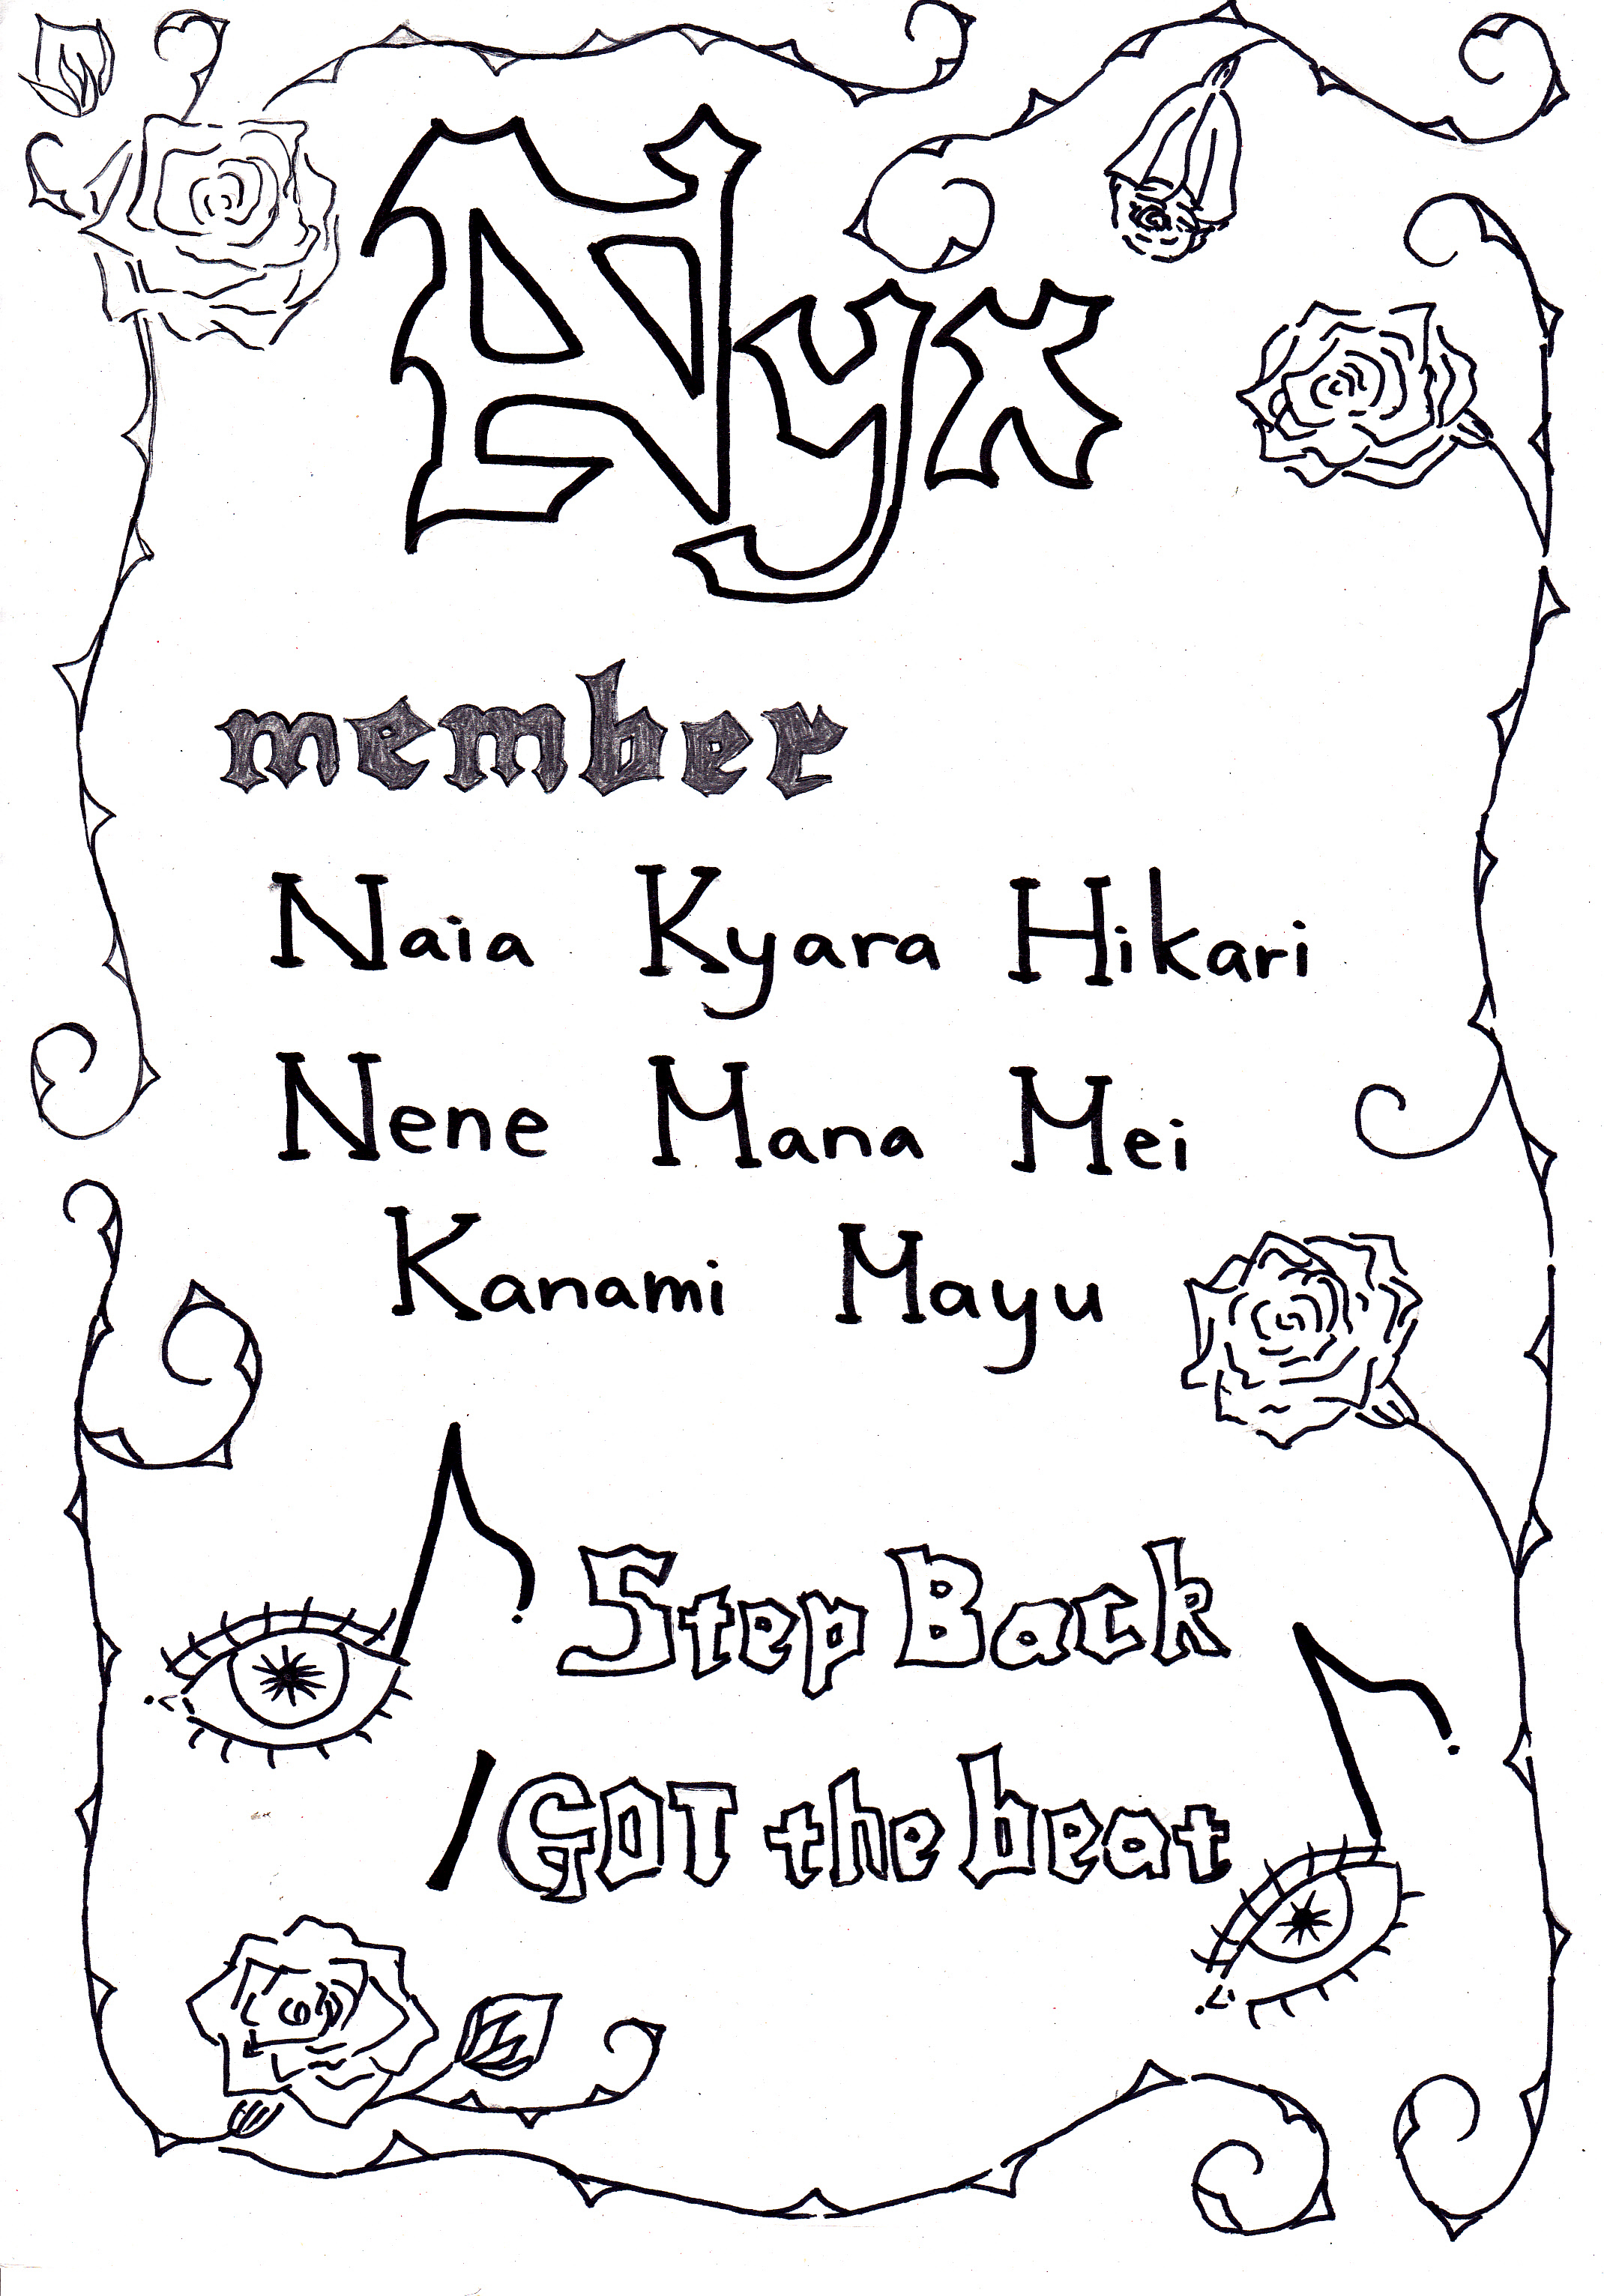 Nyx
member
Naia Kyara Hikari
Nene Mana Mei
Kanami Mayu
Step Back
/GOT the beat